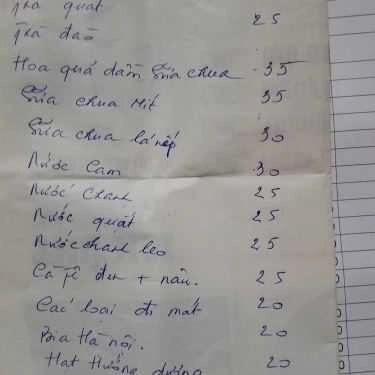 Trà quất
Trà đào 25
Hoa quả dầm sữa chua 35
Sữa chua Mít 35
Sữa chua lá nếp 30
Nước Cam 30
Nước Chanh 25
Nước quất 25
Nước chanh leo 25
Cà fê đen + nâu. 25
Các loại đi mát 20
Bia Hà nội. 20
Hạt Hướng dương 20